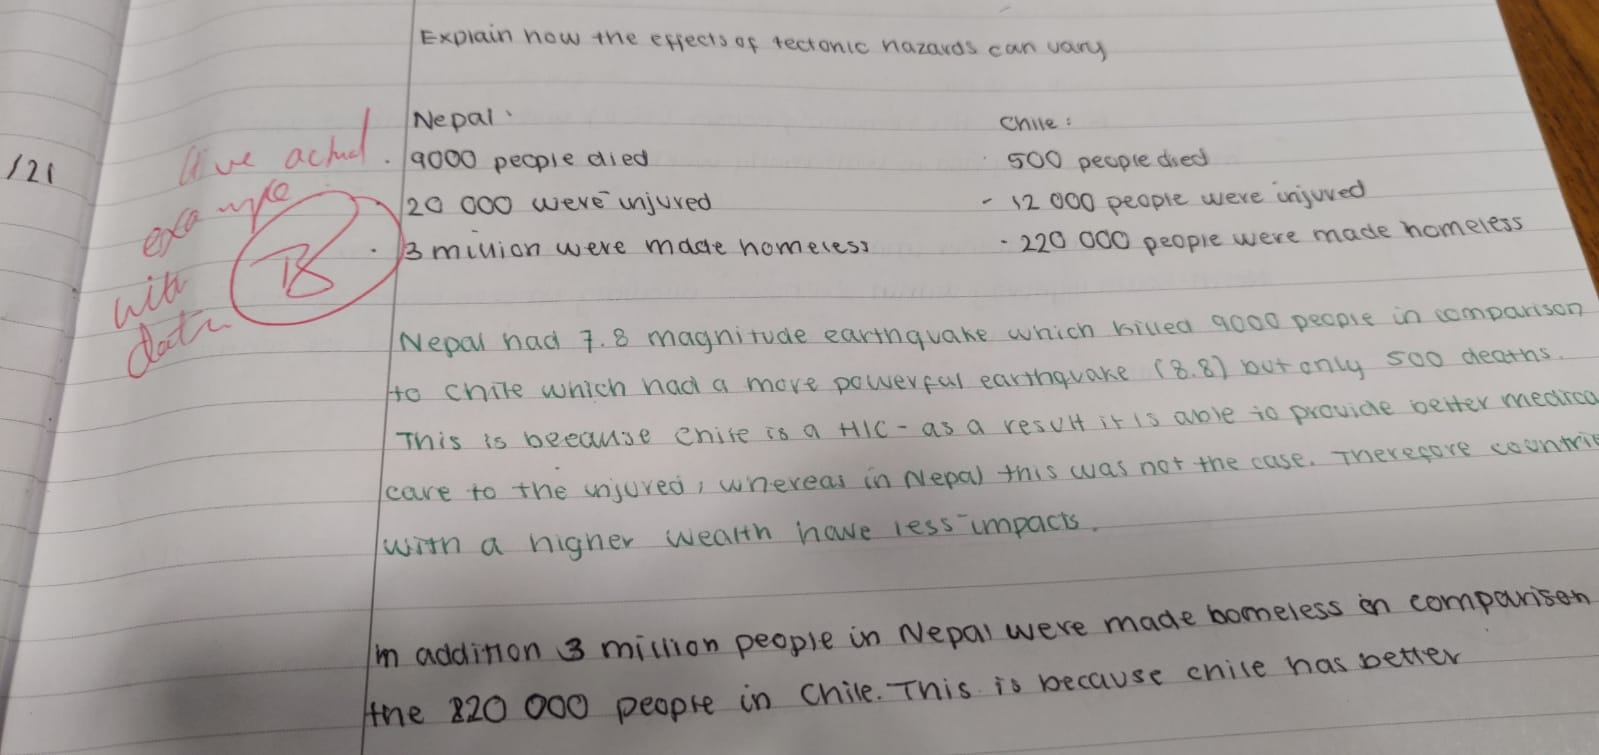 Explain how the effects of tectonic hazards can vary
/21
Give actual
example
with
data
B
Nepal:
· 9000 people died
· 20 000 were injured
· 3 million were made homeless
Chile:
· 500 people died
- 12 000 people were injured
- 220 000 people were made homeless
Nepal had 7.8 magnitude earthquake which killed 9000 people in comparison
to Chile which had a more powerful earthquake (8.8) but only 500 deaths.
This is because Chile is a HIC - as a result it is able to provide better medica
care to the injured, whereas in Nepal this was not the case. Therefore countrie
with a higher wealth have less impacts.
In addition 3 million people in Nepal were made homeless in comparison
the 220 000 people in Chile. This is because Chile has better